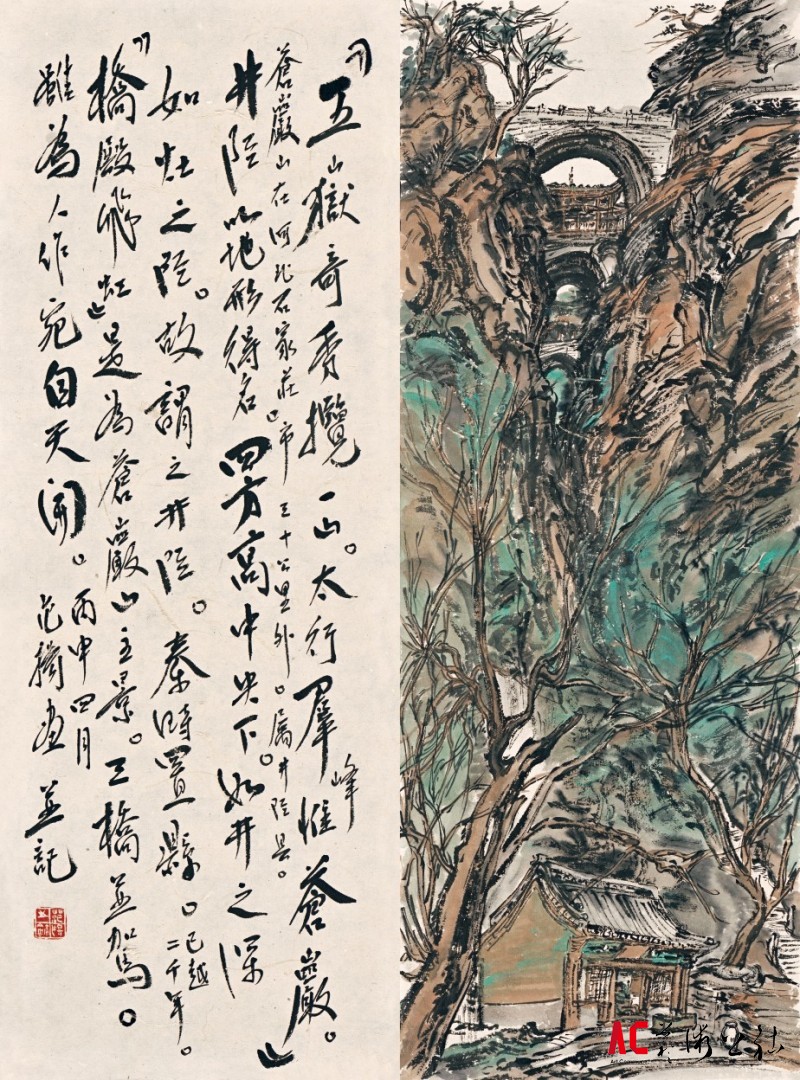 『五嶽奇秀攬一山。太行羣峰惟蒼巖。』
蒼巖山在河北石家莊市三十公里外。屬井陘县。
井陘以地形得名四方高中央下。如井之深
如灶之陘。故謂之井陘。秦時置縣。已越二千年。
『橋殿飛虹』是為蒼巖山主景。三橋並駕。
雖為人作宛自天開。丙申四月
范揚畫並記
AC